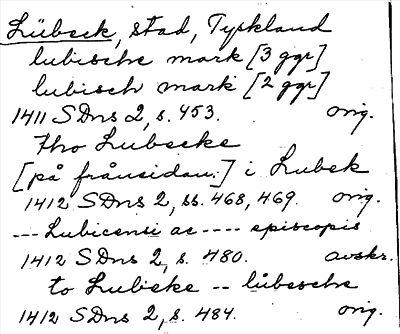 Lübeck, stad, Tyskland
lubische mark [3 ggr]
lubisch mark [2 ggr]
1411 SDns 2, s. 453. orig.
Tho Lubecke
[på frånsidan:] i Lubek
1412 SDns 2, ss. 468, 469. orig.
--- Lubicensi ac ---- episcopis
1412 SDns 2, s. 480. avskr.
to Lubeke -- lübesche
1412 SDns 2, s. 484. orig.